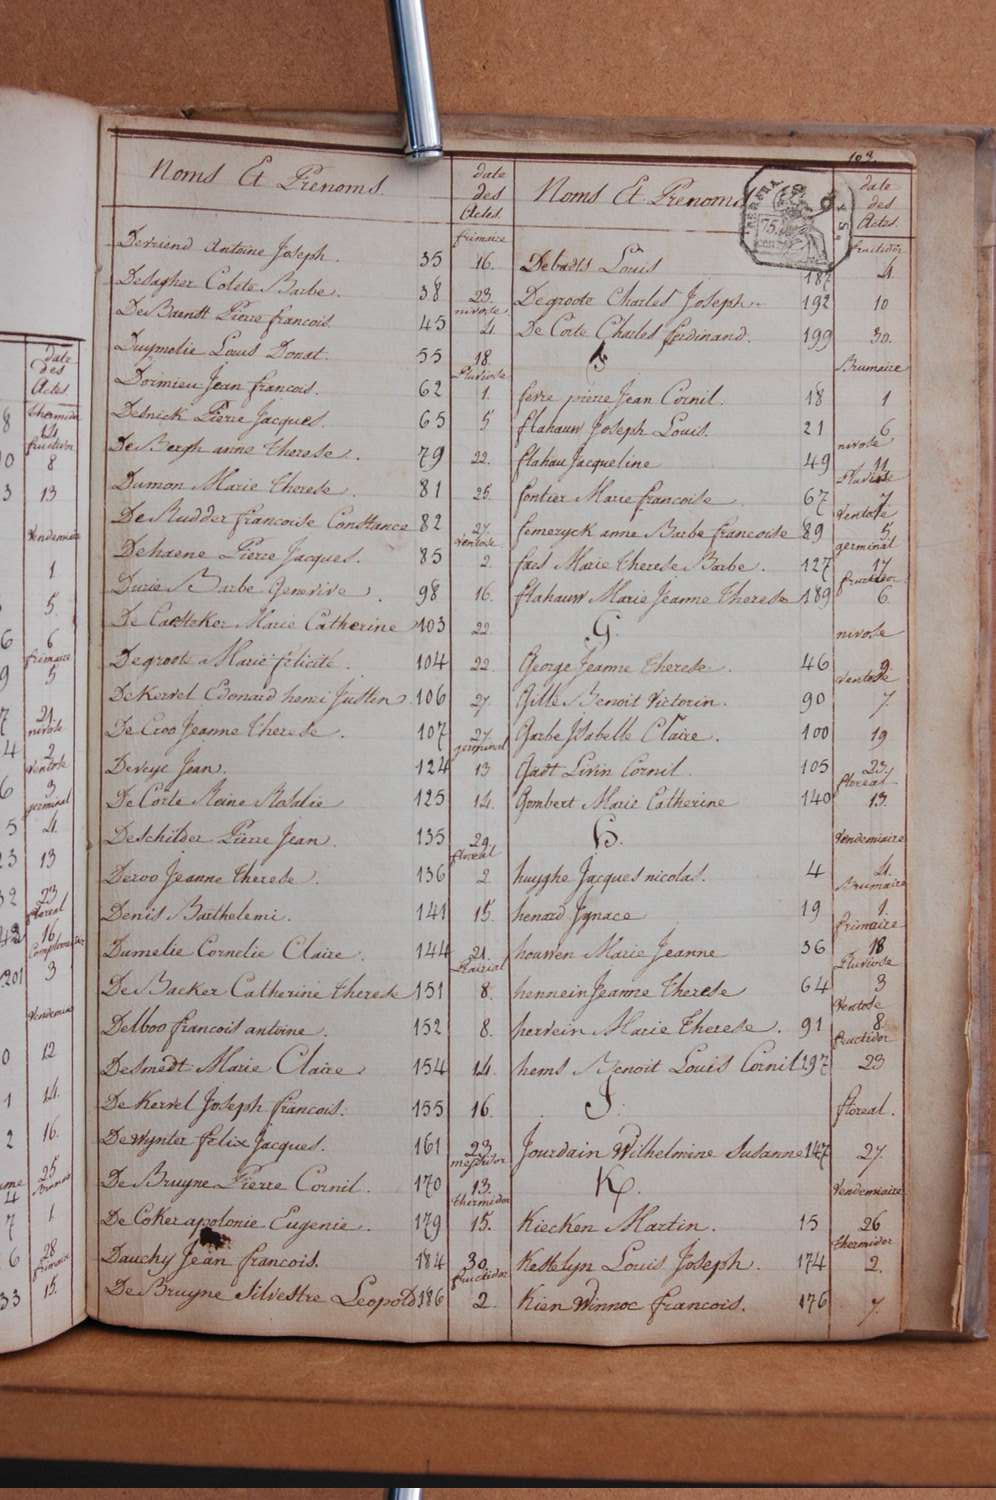 103.
Noms Et Prenoms
date
des
Actes.
frimaire
Devriend Antoine Joseph. 35 16.
Desagher Colete Barbe. 38 23.
nivose
De Baendt Pierre francois. 45 4
Duymelie Louis Donat. 55 18.
Pluviose
Dormieu Jean francois. 62 1.
Desnick Pierre Jacques. 65 5
De Bergh anne therese. 79 22.
Dumon Marie therese. 81 25.
De Rudder francoise Constance 82 27
ventose
Dehaene Pierre Jacques. 85 2.
Durie Barbe Genevive. 98 16.
De Marie Catherine 103 22
Degroote Marie felicité. 104 22
De Kervel Edouard henri Justin 106 27
De Croo Jeanne therese. 107 27
germinal
Deveye Jean. 124 13
De Corte Reine Rosalie 125 14.
Deschilder Pierre Jean. 135 29.
floreal
Deroo Jeanne therese. 136 2
Denis Barthelemi. 141 15.
Dumelie Cornelie Claire. 144 21.
Prairial
De Backer Catherine therese 151 8.
Delboo francois antoine. 152 8.
Desmedt Marie Claire 154 14.
De Kervel Joseph francois. 155 16.
De Wynter felix Jacques. 161 23
messidor
De Bruyne Pierre Cornil. 170 13.
thermidor
De Coker apolonie Eugenie. 179 15.
Dauchy Jean francois. 184 30
fructidor
De Bruyne Silvestre Leopold 186 2.
Noms Et Prenoms
date
des
Actes.
fructidor
Debadts Louis 187 4.
Degroote Charles Joseph. 192 10
De Corte Charles ferdinand. 199 30.
F
Brumaire
fevre pierre Jean Cornil. 18 1
flahauw Joseph Louis. 21 6
nivose
flahau Jacqueline 49 11
Pluviose
fontier Marie francoise 67 7
Ventose
femeryck anne Barbe francoise 89 5
germinal
faes Marie therese Barbe. 127 17
fructidor
flahauw Marie Jeanne Therese 189 6
G.
nivose
George Jeanne therese. 46 2
Ventose
Gille Benoit Victorin. 90 7
Garbe Isabelle Claire. 100 19
Gadt Livin Cornil. 105 23
floreal
Gombert Marie Catherine 140 13.
H.
Vendemiaire
huyghe Jacques nicolas. 4 4.
Brumaire
henard Ignace 19 1.
frimaire
houwen Marie Jeanne 36 18
Pluviose
hennein Jeanne Therese 64 3
Ventose
hervein Marie Therese. 91 8
fructidor
hems Benoit Louis Cornil 197 23
J.
floreal.
Jourdain Wilhelmine Susanne 147 27
K.
Vendemiaire
Kiecken Martin. 15 26
thermidor
Kestelyn Louis Joseph. 174 2.
Kien Winnoc francois. 176 7.